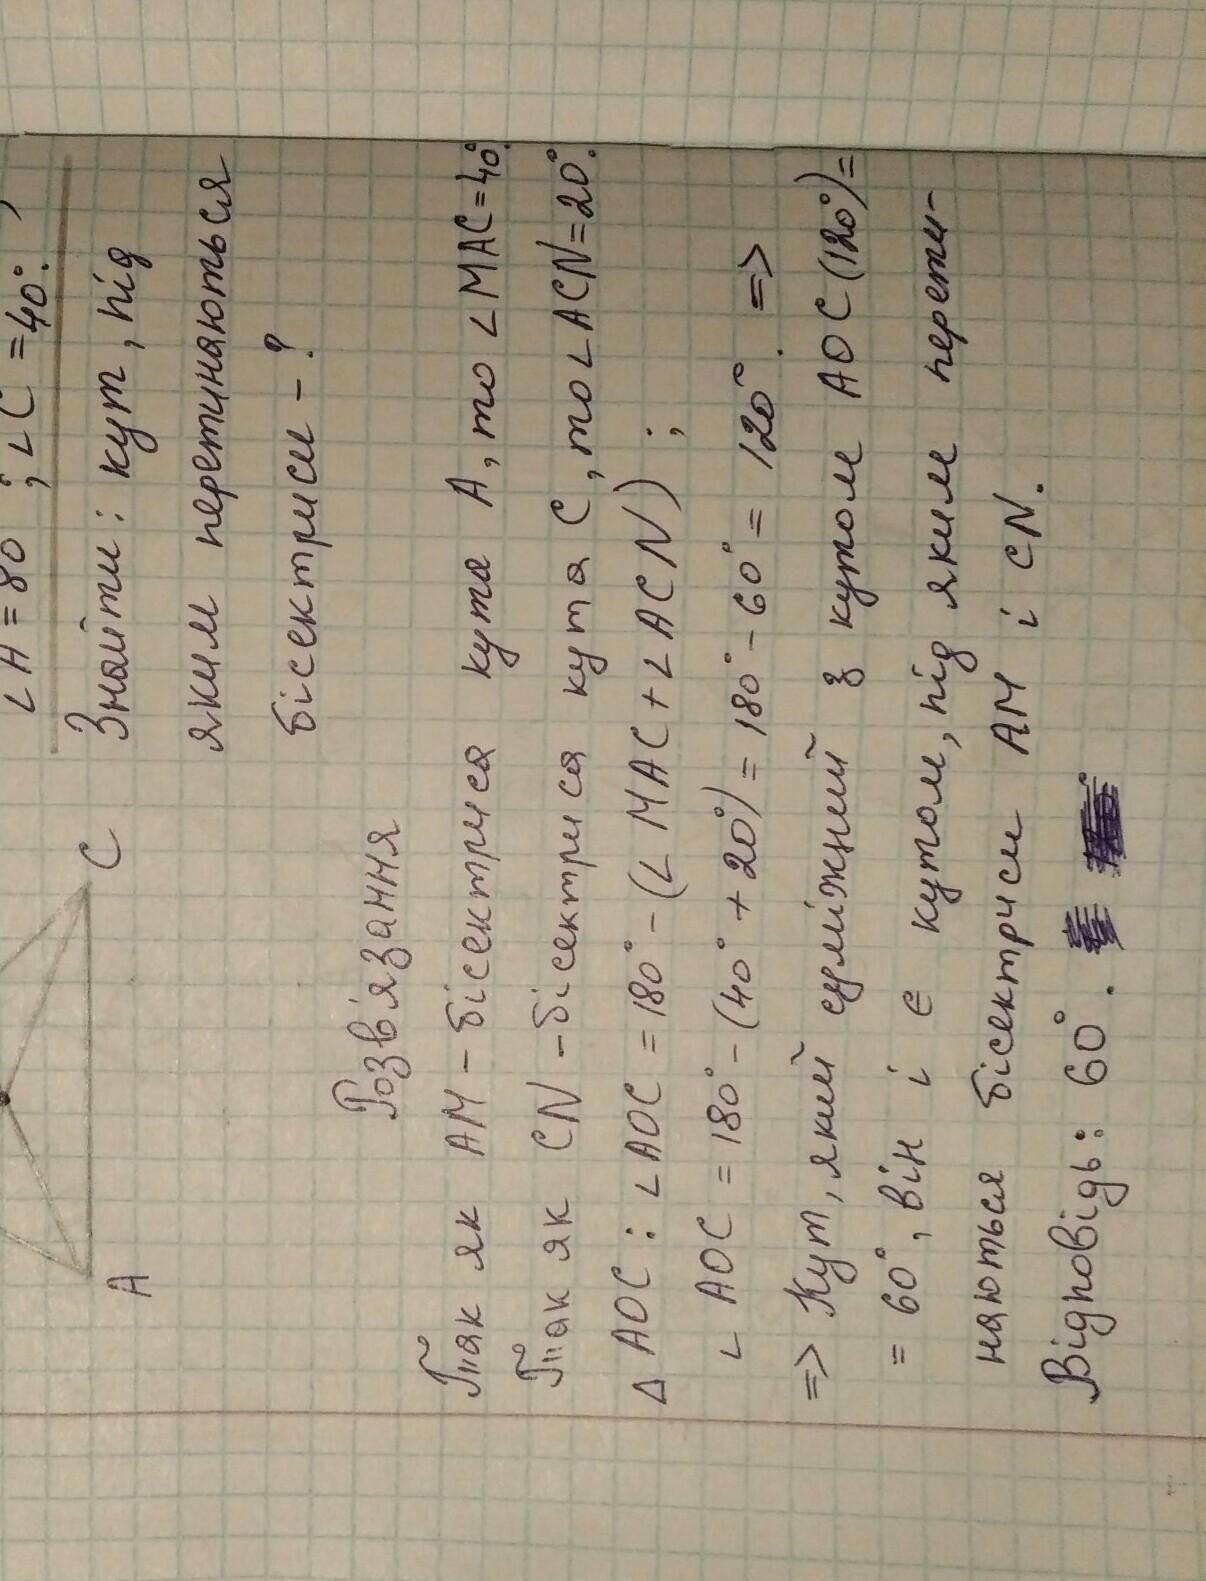 ∠A = 80°; ∠C = 40°.
Знайти: кут, під
яким перетинаються
бісектриси - ?
A
C
Розв'язання
Так як AM - бісектриса кута A, то ∠MAC = 40°.
Так як CN - бісектриса кута C, то ∠ACN = 20°.
Δ AOC: ∠AOC = 180° - (∠MAC + ∠ACN);
∠AOC = 180° - (40° + 20°) = 180° - 60° = 120°. =>
=> Кут, який суміжний з кутом AOC (120°) =
= 60°, він і є кутом, під яким перети-
наються бісектриси AM і CN.
Відповідь: 60°.